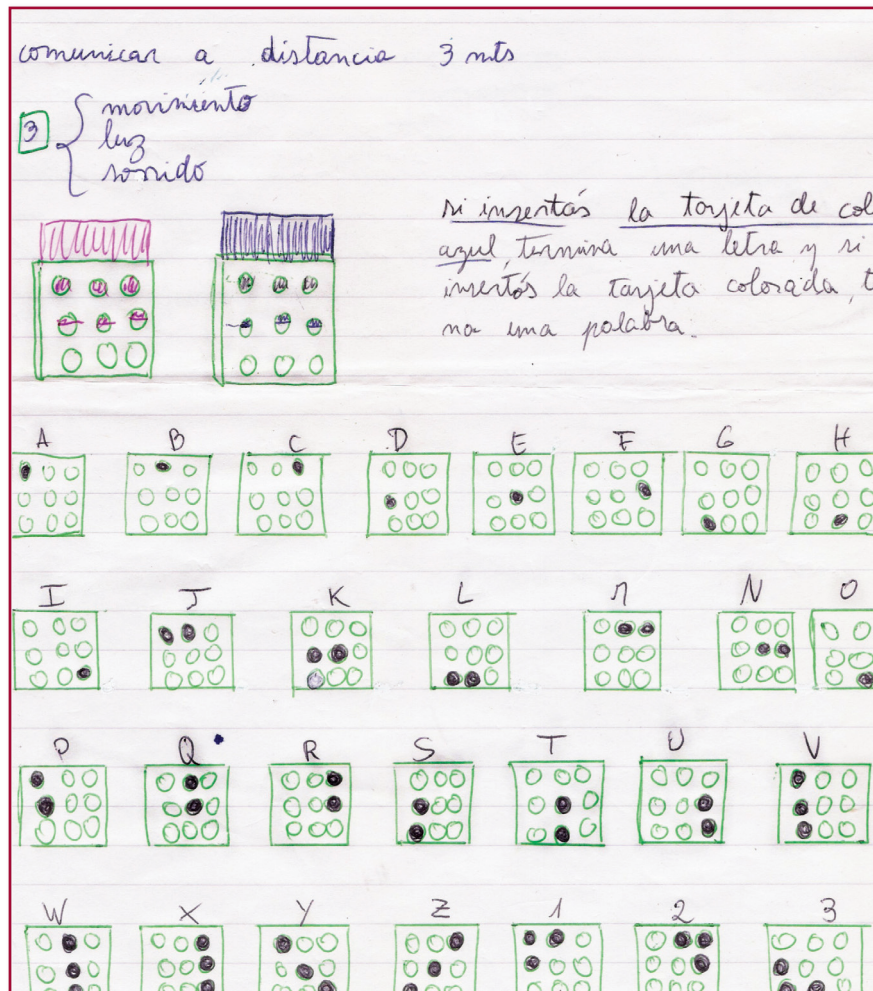 comunicar a distancia 3 mts
3 movimiento
luz
sonido
si insertás la tarjeta de col
azul, termina una letra y si
insertás la tarjeta colorada, t
na una palabra.
A B C D E F G H
I J K L M N O
P Q R S T U V
W X Y Z 1 2 3